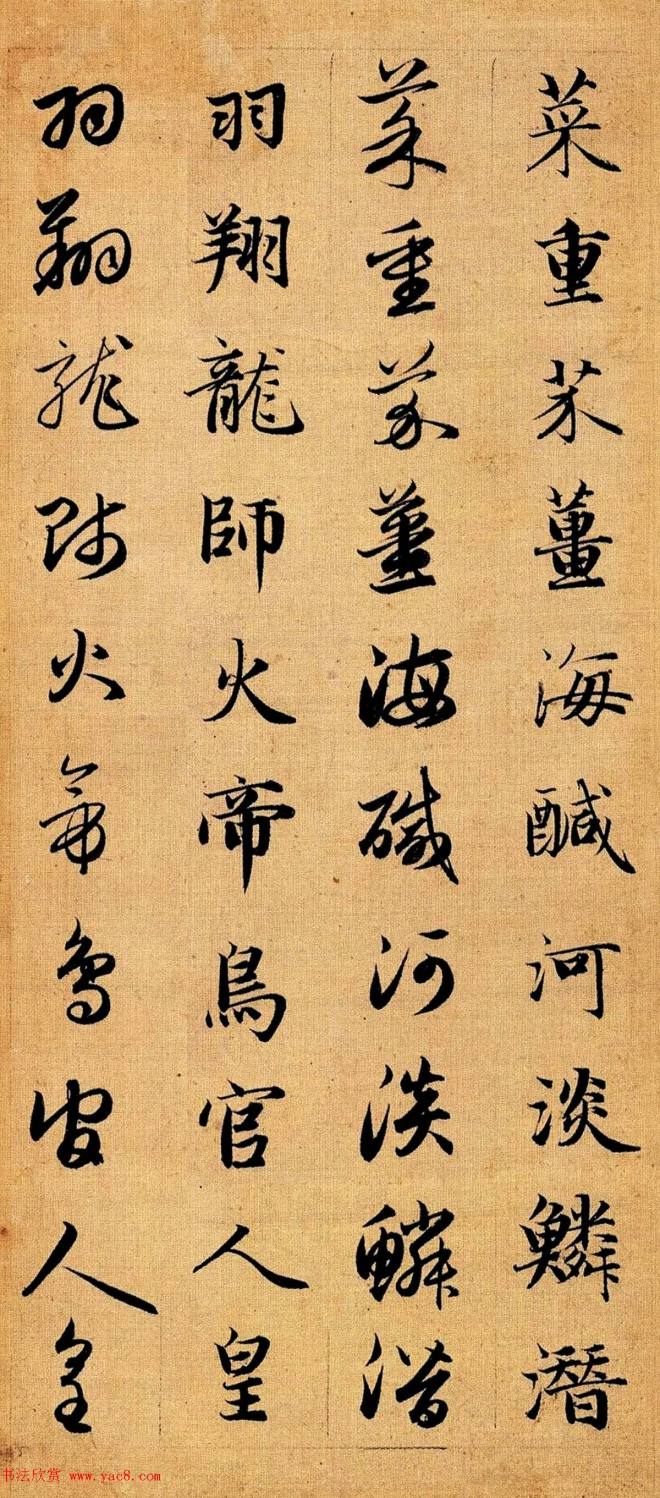 菜重芥薑海醎河淡鱗潛
菜重芥薑海醎河淡鱗潛
羽翔龍師火帝鳥官人皇
羽翔龍師火帝鳥官人皇
书法欣赏 www.yac8.com